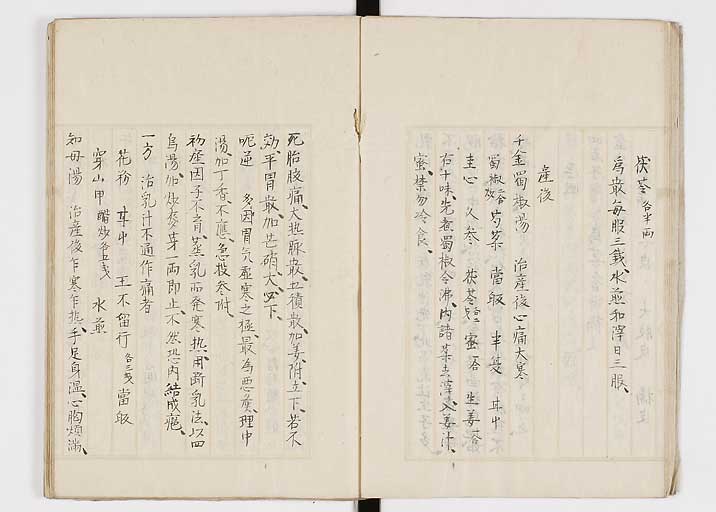 茯苓 各半両
為散每服三銭水煎和滓日三服
産後
千金蜀椒湯 治産後心痛大寒
蜀椒 芍薬 當皈 半夏 甘中
圭心 人参 茯苓 蜜 生姜
右十味先煮蜀椒令沸内諸薬去滓入姜汁
蜜禁勿冷食
死胎腹痛大热脉
効平胃散加芒硝大必下
呃逆 多因胃气虚寒之極最為悪候理中
湯加丁香不應急投参附
初産因子不育蒸乳而発寒热用断乳法以四
烏湯加炒麥芽一両即止不然恐内結成癰
一方 治乳汁不通作痛者
花粉 甘中 王不留行 各三戋 當皈
穿山甲 炒各五戋 水煎
知母湯 治産後乍寒乍热手足身温心胸煩満